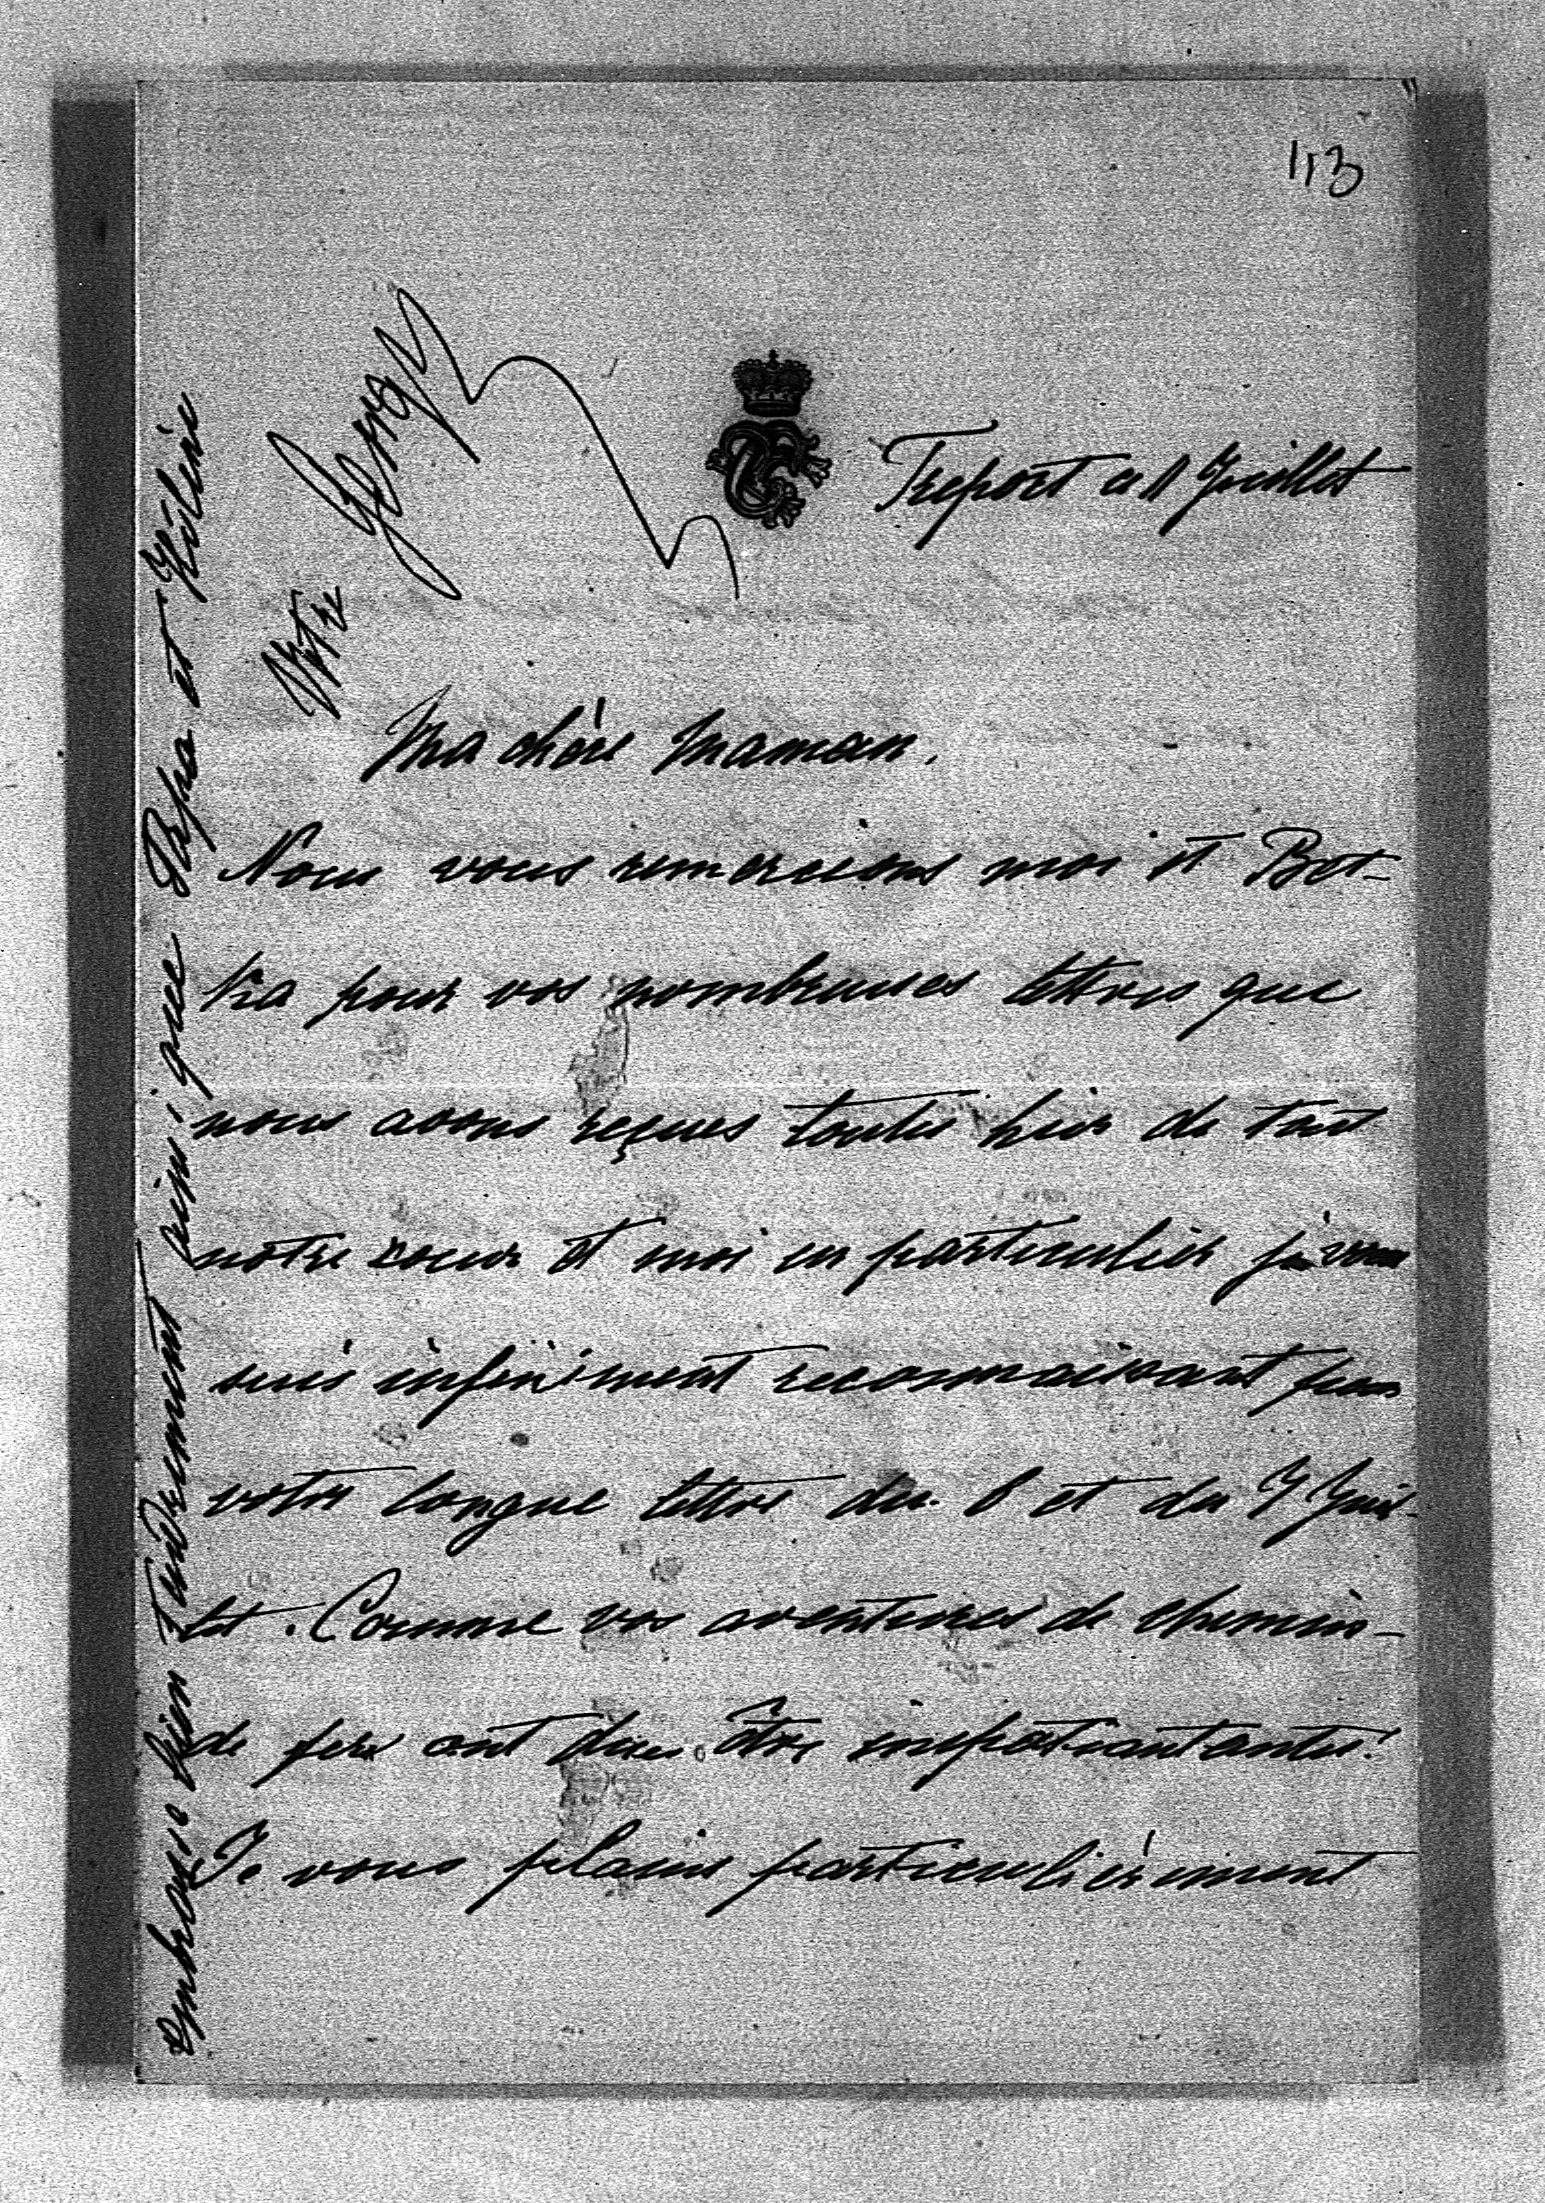 113
Treport ce 11 Juillet
Ma chère Maman.
Nous vous remercions moi et Bet-
tia pour vos nombreuses lettres que
nous avons reçues toutes hier de tout
notre coeur et moi en particulier je vous
suis infiniment reconnaissant pour
votre longue lettre du 6 et du 7 Juil-
let. Comme vos aventures de chemin-
de fer ont dues être impatiantantes!
Je vous plains particulièrement
embrasse bien tendrement ainsi que Papa et Hélène
Votre